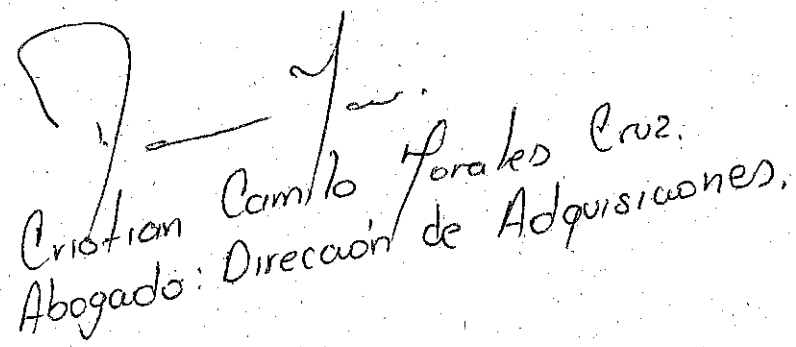 Cristian Camilo Morales Cruz.
Abogado: Dirección de Adquisiciones.